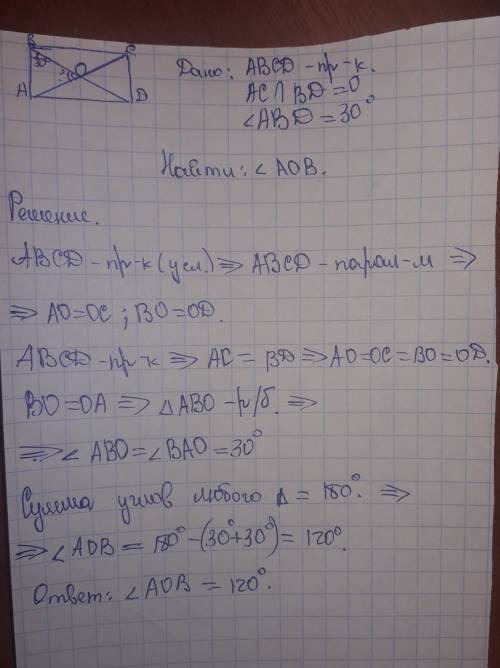 B
C
30°
?
O
A
D
Дано: ABCD - пр-к.
AC ∩ BD = O
∠ABD = 30°
Найти: ∠ AOB.
Решение.
ABCD - пр-к (усл.) ⇒ ABCD - парал-м ⇒
⇒ AO=OC ; BO=OD.
ABCD - пр-к ⇒ AC = BD ⇒ AO=OC=BO=OD.
BO=OA ⇒ △ABO - р/б. ⇒
⇒ ∠ ABO = ∠BAO = 30°
Сумма углов любого Δ = 180°. ⇒
⇒ ∠AOB = 180° - (30°+30°) = 120°.
Ответ: ∠AOB = 120°.